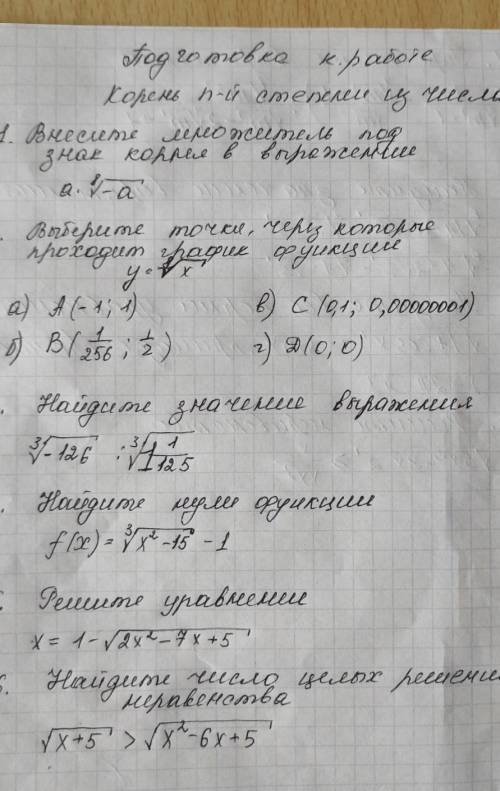 Подготовка к. работе
Корень n-й степени из числа
1. Внесите множитель под
знак корня в выражении
a · ⁸√-a
. Выберите точки, через которые
проходит график функции
y = ⁸√x
а) A (-1; 1) в) C (0,1; 0,00000001)
б) B (1/256; 1/2) г) D (0; 0)
. Найдите значение выражения
³√-126 : ³√1 1/125
. Найдите нули функции
f(x) = ³√x² - 15 - 1
. Решите уравнении
x = 1 - √2x² - 7x + 5
6. Найдите число целых решени
неравенства
√x + 5 > √x² - 6x + 5